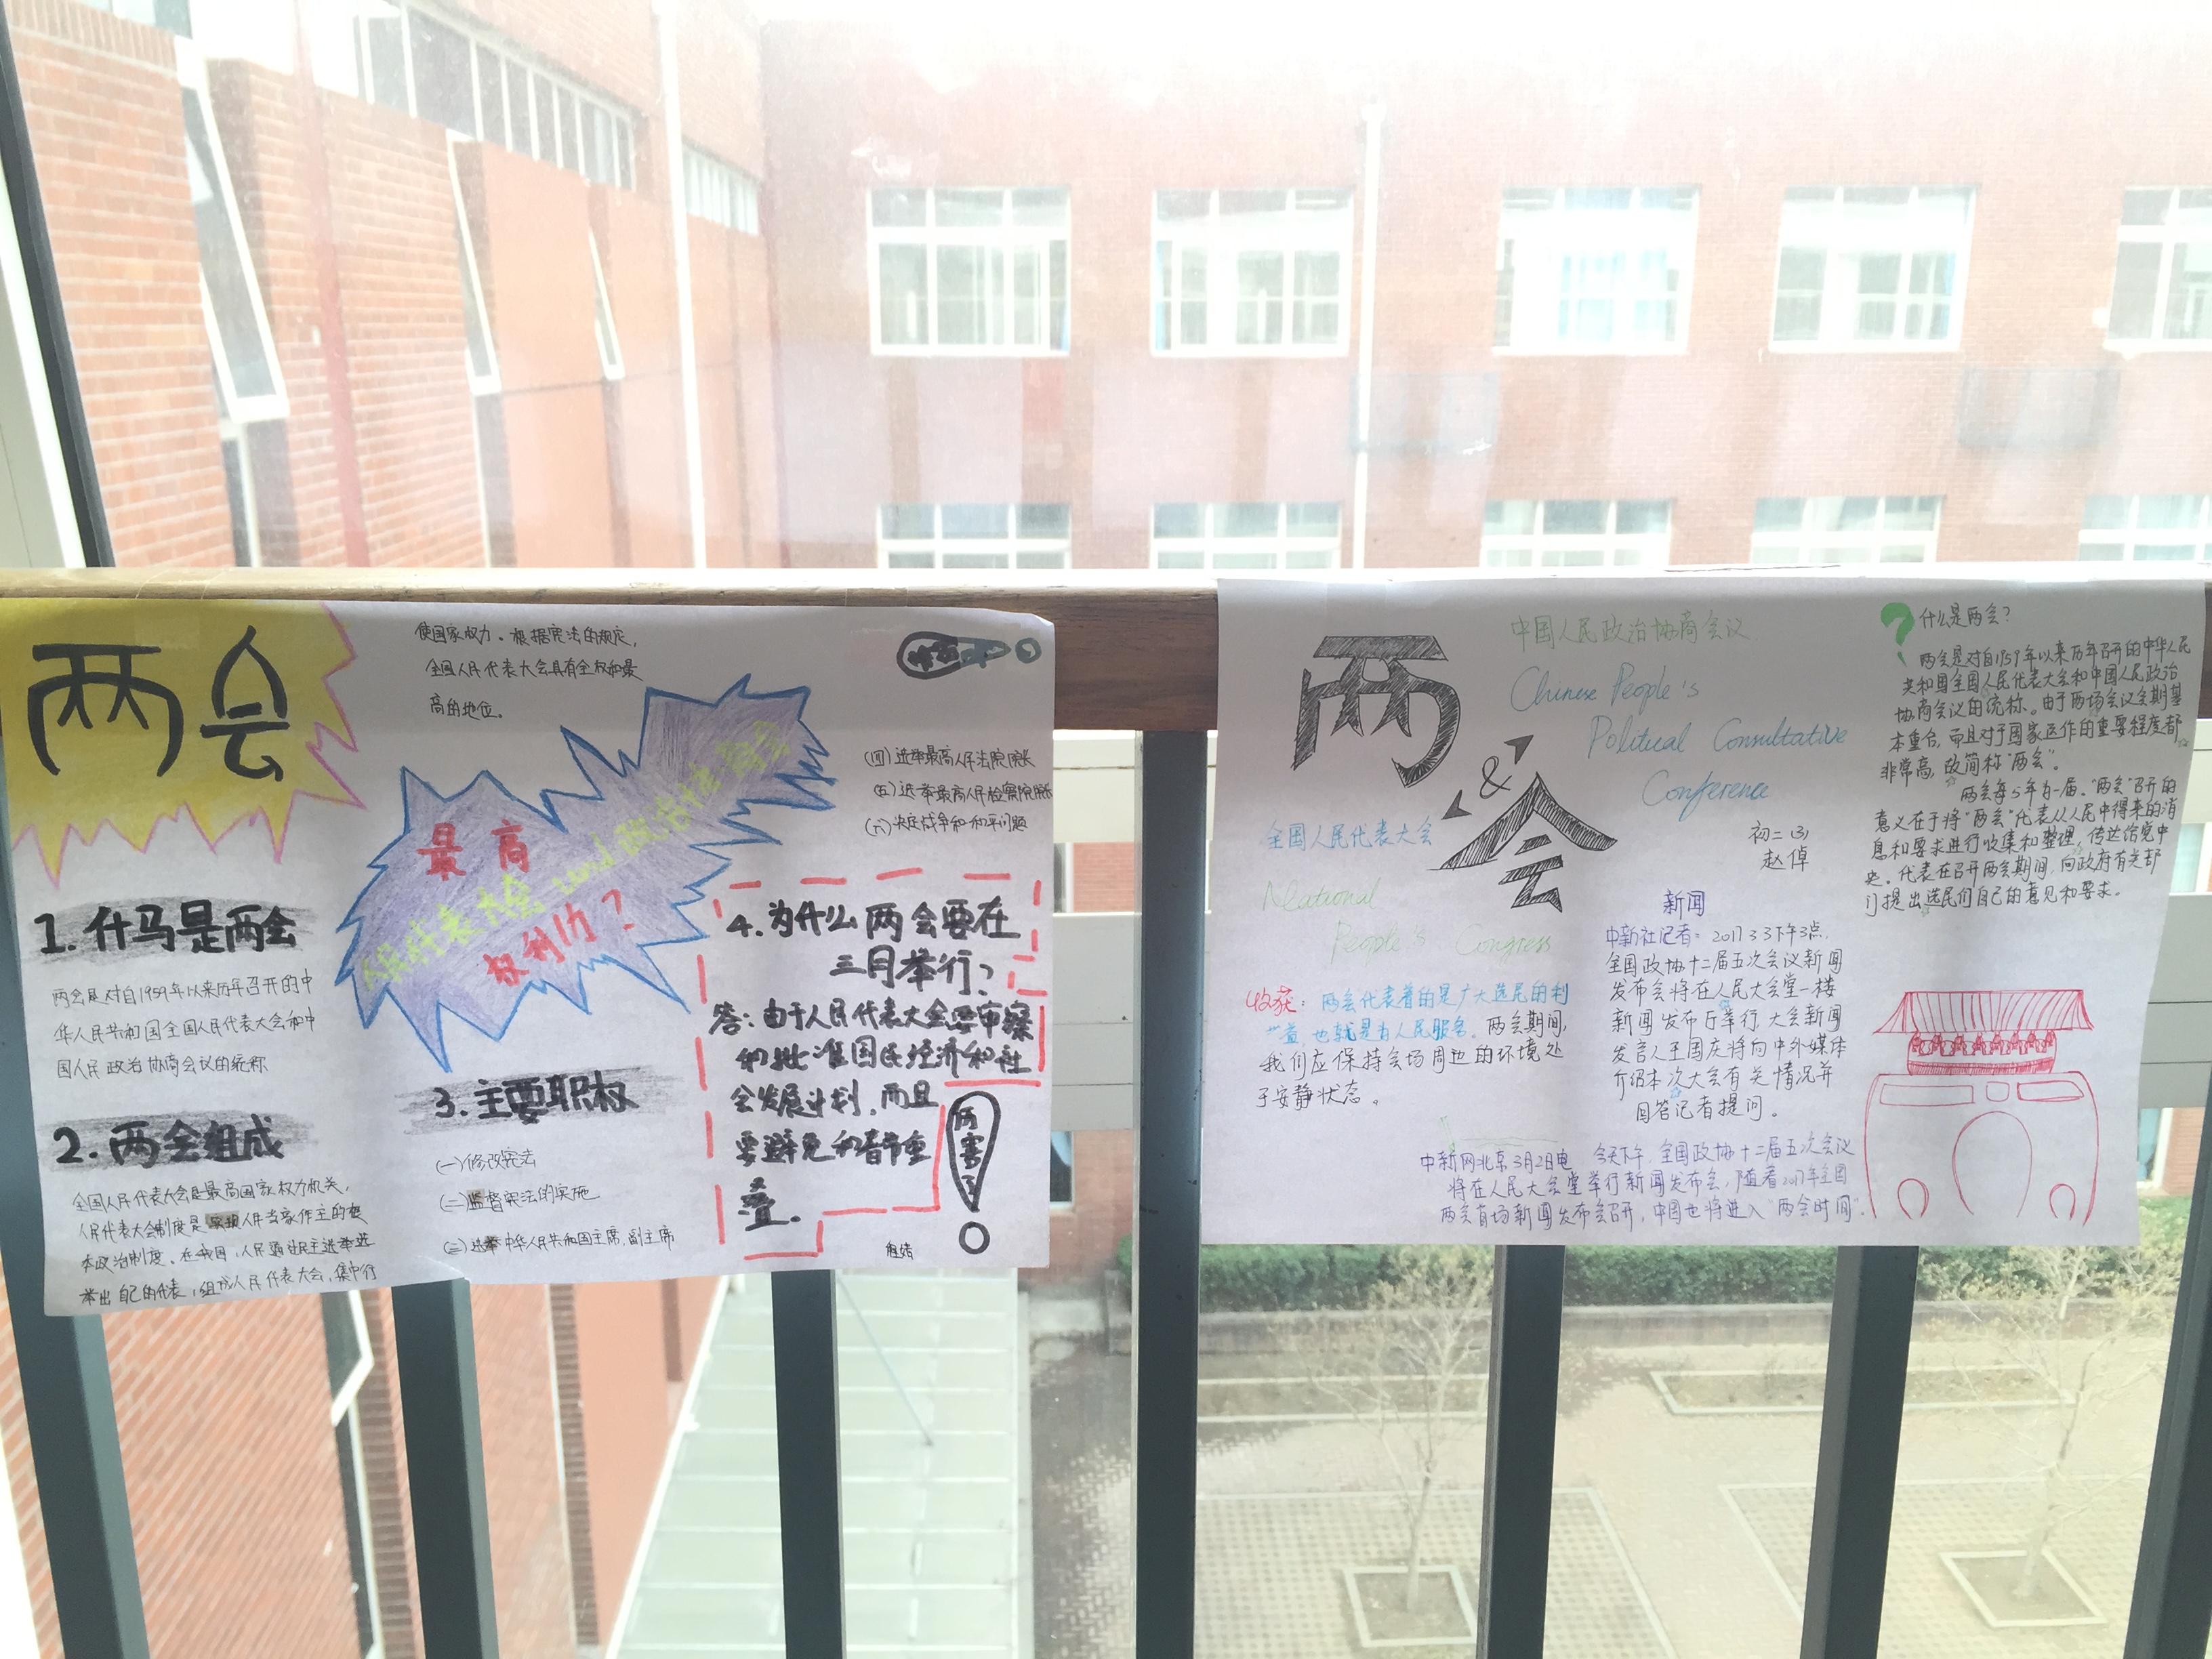 两会
1. 什马是两会
两会是对自1959年以来历年召开的中
华人民共和国全国人民代表大会和中
国人民政治协商会议的统称
2. 两会组成
全国人民代表大会是最高国家权力机关,
人民代表大会制度是实现人民当家作主的根
本政治制度。在我国,人民通过民主选举选
举出自己的代表,组成人民代表大会,集中行
使国家权力。根据宪法的规定,
全国人民代表大会具有全权和最
高的地位。
最高
人民代表大会 and 政治协商会
权利力?
3. 主要职权
(一)修改宪法
(二)监督宪法的实施
(三)选举中华人民共和国主席,副主席
(四)选举最高人民法院院长
(五)选举最高人民检察院院长
(六)决定战争和和平问题
4. 为什么两会要在
三月举行?
答:由于人民代表大会要审察
和批准国民经济和社
会发展计划,而且
要避免和春节重
叠.
厉害了
两
&
会
中国人民政治协商会议
Chinese People's
Political Consultative
Conference
全国人民代表大会
National
People's Congress
初二(3)
赵倬
收获:两会代表着的是广大选民的利
益,也就是为人民服务。两会期间,
我们应保持会场周边的环境处
于安静状态。
新闻
中新社记者:2017 3 3下午3点,
全国政协十二届五次会议新闻
发布会将在人民大会堂一楼
新闻发布厅举行,大会新闻
发言人王国庆将向中外媒体
介绍本次大会有关情况并
回答记者提问。
中新网北京3月2日电 今天下午,全国政协十二届五次会议
将在人民大会堂举行新闻发布会,随着2017年全国
两会首场新闻发布会召开,中国也将进入"两会时间".
? 什么是两会?
两会是对自1959年以来历年召开的中华人民
共和国全国人民代表大会和中国人民政治
协商会议的统称。由于两场会议会期基
本重合,而且对于国家运作的重要程度都
非常高,故简称"两会"。
两会每5年为一届."两会"召开的
意义在于将"两会"代表从人民中得来的消
息和要求进行收集和整理,传达给党中
央。代表在召开两会期间,向政府有关部
门提出选民们自己的意见和要求.